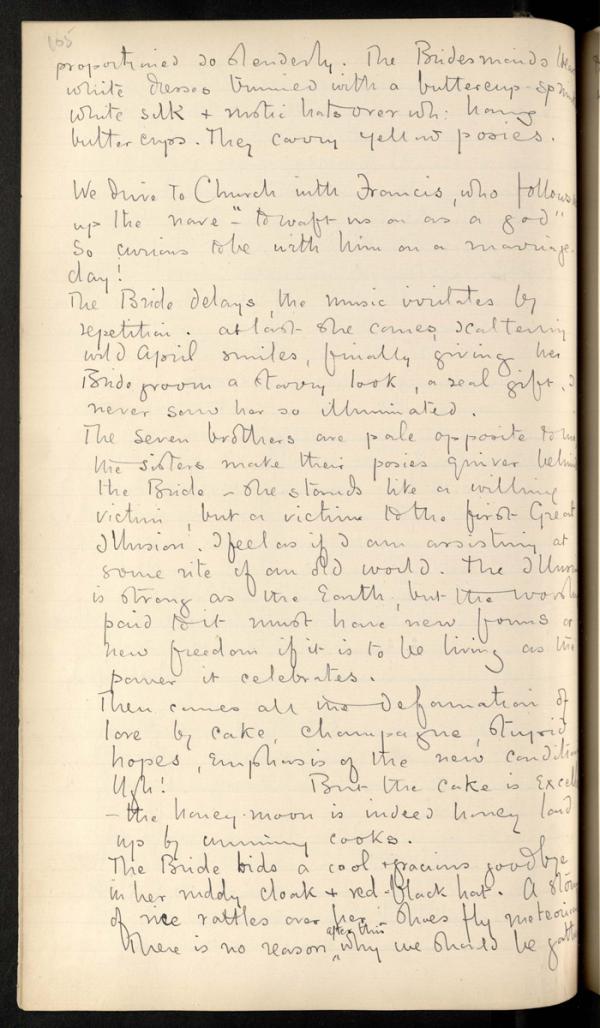 165
proportioned so slenderly. The Bridesmaids
white dresses trimmed with a buttercup-
white silk & rustic hats over wh: hang
buttercups. They carry yellow posies.
We drive to Church with Francis, who follows
up the nave – "to waft us on as a god"
So curious to be with him on a marriage-
day!
The Bride delays, the music irritates by
repetition. at last she comes, scattering
wild April smiles, finally giving her
Bridegroom a starry look, a real gift. I
never saw her so illuminated.
The seven brothers are pale opposite to
the sisters make their posies quiver behind
the Bride – she stands like a willing
victim, but a victim to the first Great
Illusion. I feel as if I am assisting at
some rite of an old world. The
is strong as the Earth, but the
paid to it must have new forms or
new freedom if it is to be living as the
power it celebrates.
Then comes all the deformation of
love by cake, champagne, stupid
hopes, Emphasis of the new
Ugh! But the cake is
– the honey-moon is indeed honey laid
up by cunning cooks.
The Bride bids a cool & gracious goodbye
in her ruddy cloak & red-black hat. A
of rice rattles over her – Shoes fly
There is no reason after this why we should be